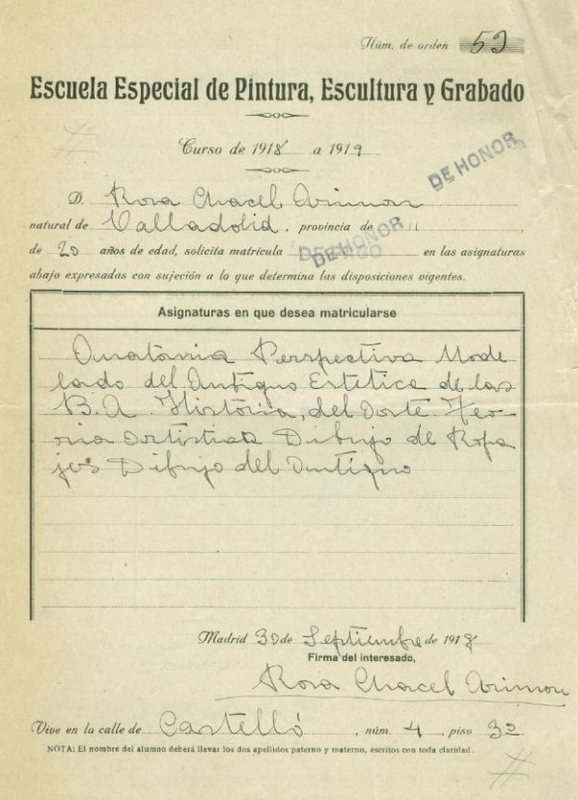 Núm. de orden 52
Escuela Especial de Pintura, Escultura y Grabado
Curso de 1918 a 1919
DE HONOR
D. Rosa Chacel Arimon
natural de Valladolid, provincia de "
DE HONOR
de 20 años de edad, solicita matrícula DE HONOR en las asignaturas
abajo expresadas con sujeción a lo que determina las disposiciones vigentes.
Asignaturas en que desea matricularse
Anatomia Perspectiva Mode
lado del Antiguo Estetica de las
B.A. Historia, del Arte Teo-
ria Artistica Dibujo de Ropa
jes Dibujo del Antiguo
Madrid 30 de Septiembre de 1918
Firma del interesado,
Rosa Chacel Arimon
Vive en la calle de Castelló, núm. 4, piso 3º
NOTA: El nombre del alumno deberá llevar los dos apellidos paterno y materno, escritos con toda claridad.